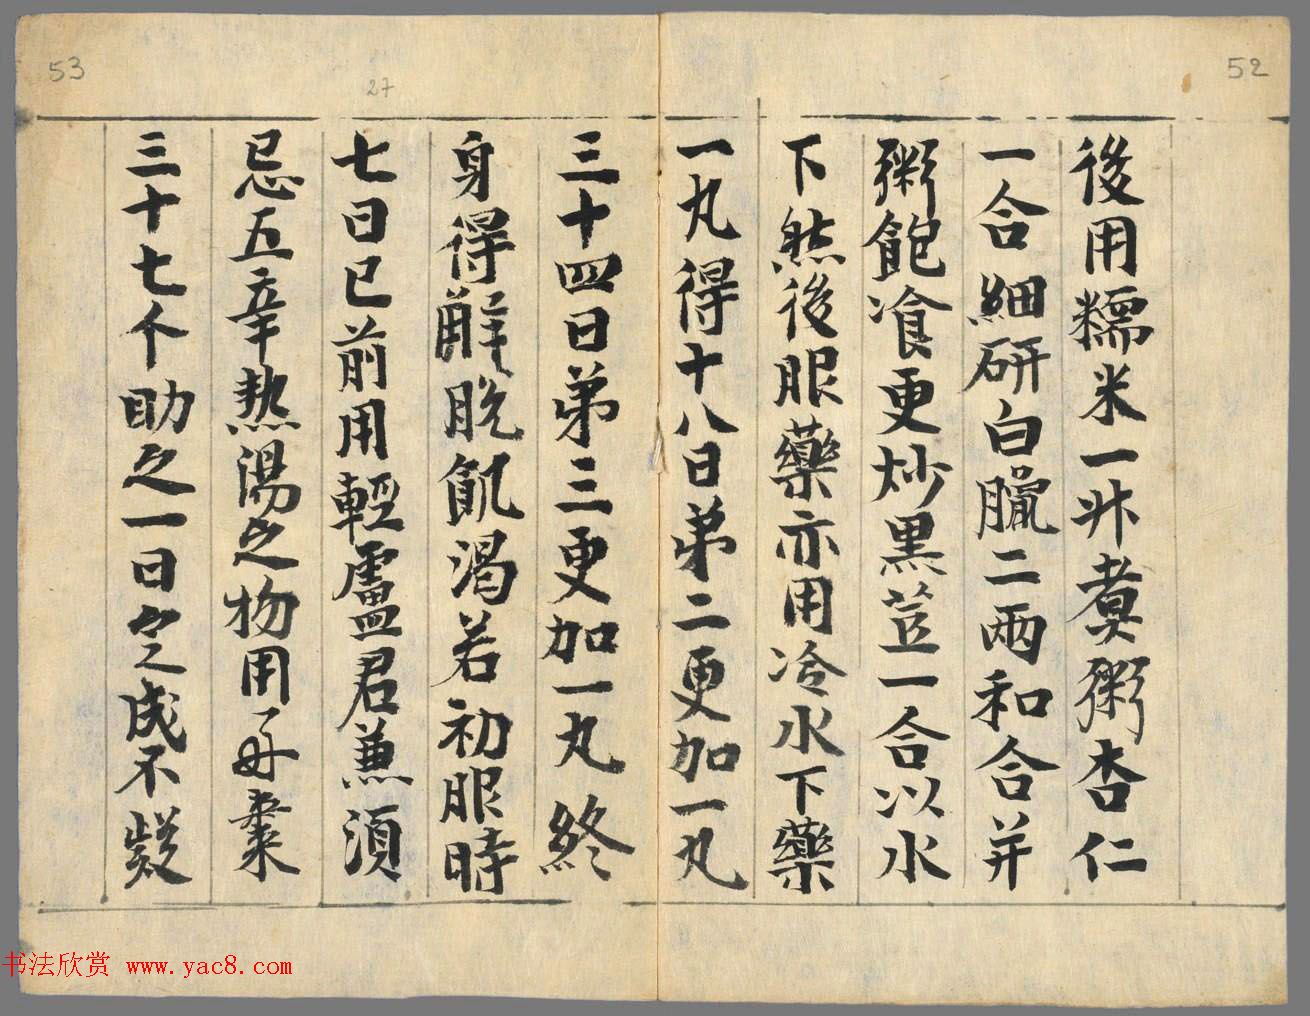 52
後用糯米一升煮粥杏仁
一合細研白臘二兩和合并
粥飽飡更炒黑荳一合以水
下然後服藥亦用冷水下藥
一丸得十八日弟二更加一丸
53
27
三十四日弟三更加一丸終
身得解脫飢渴若初服時
七日已前用輕盧君兼須
忌五辛熱湯之物用好棗
三十七个助之一日之成不疑
书法欣赏 www.yac8.com